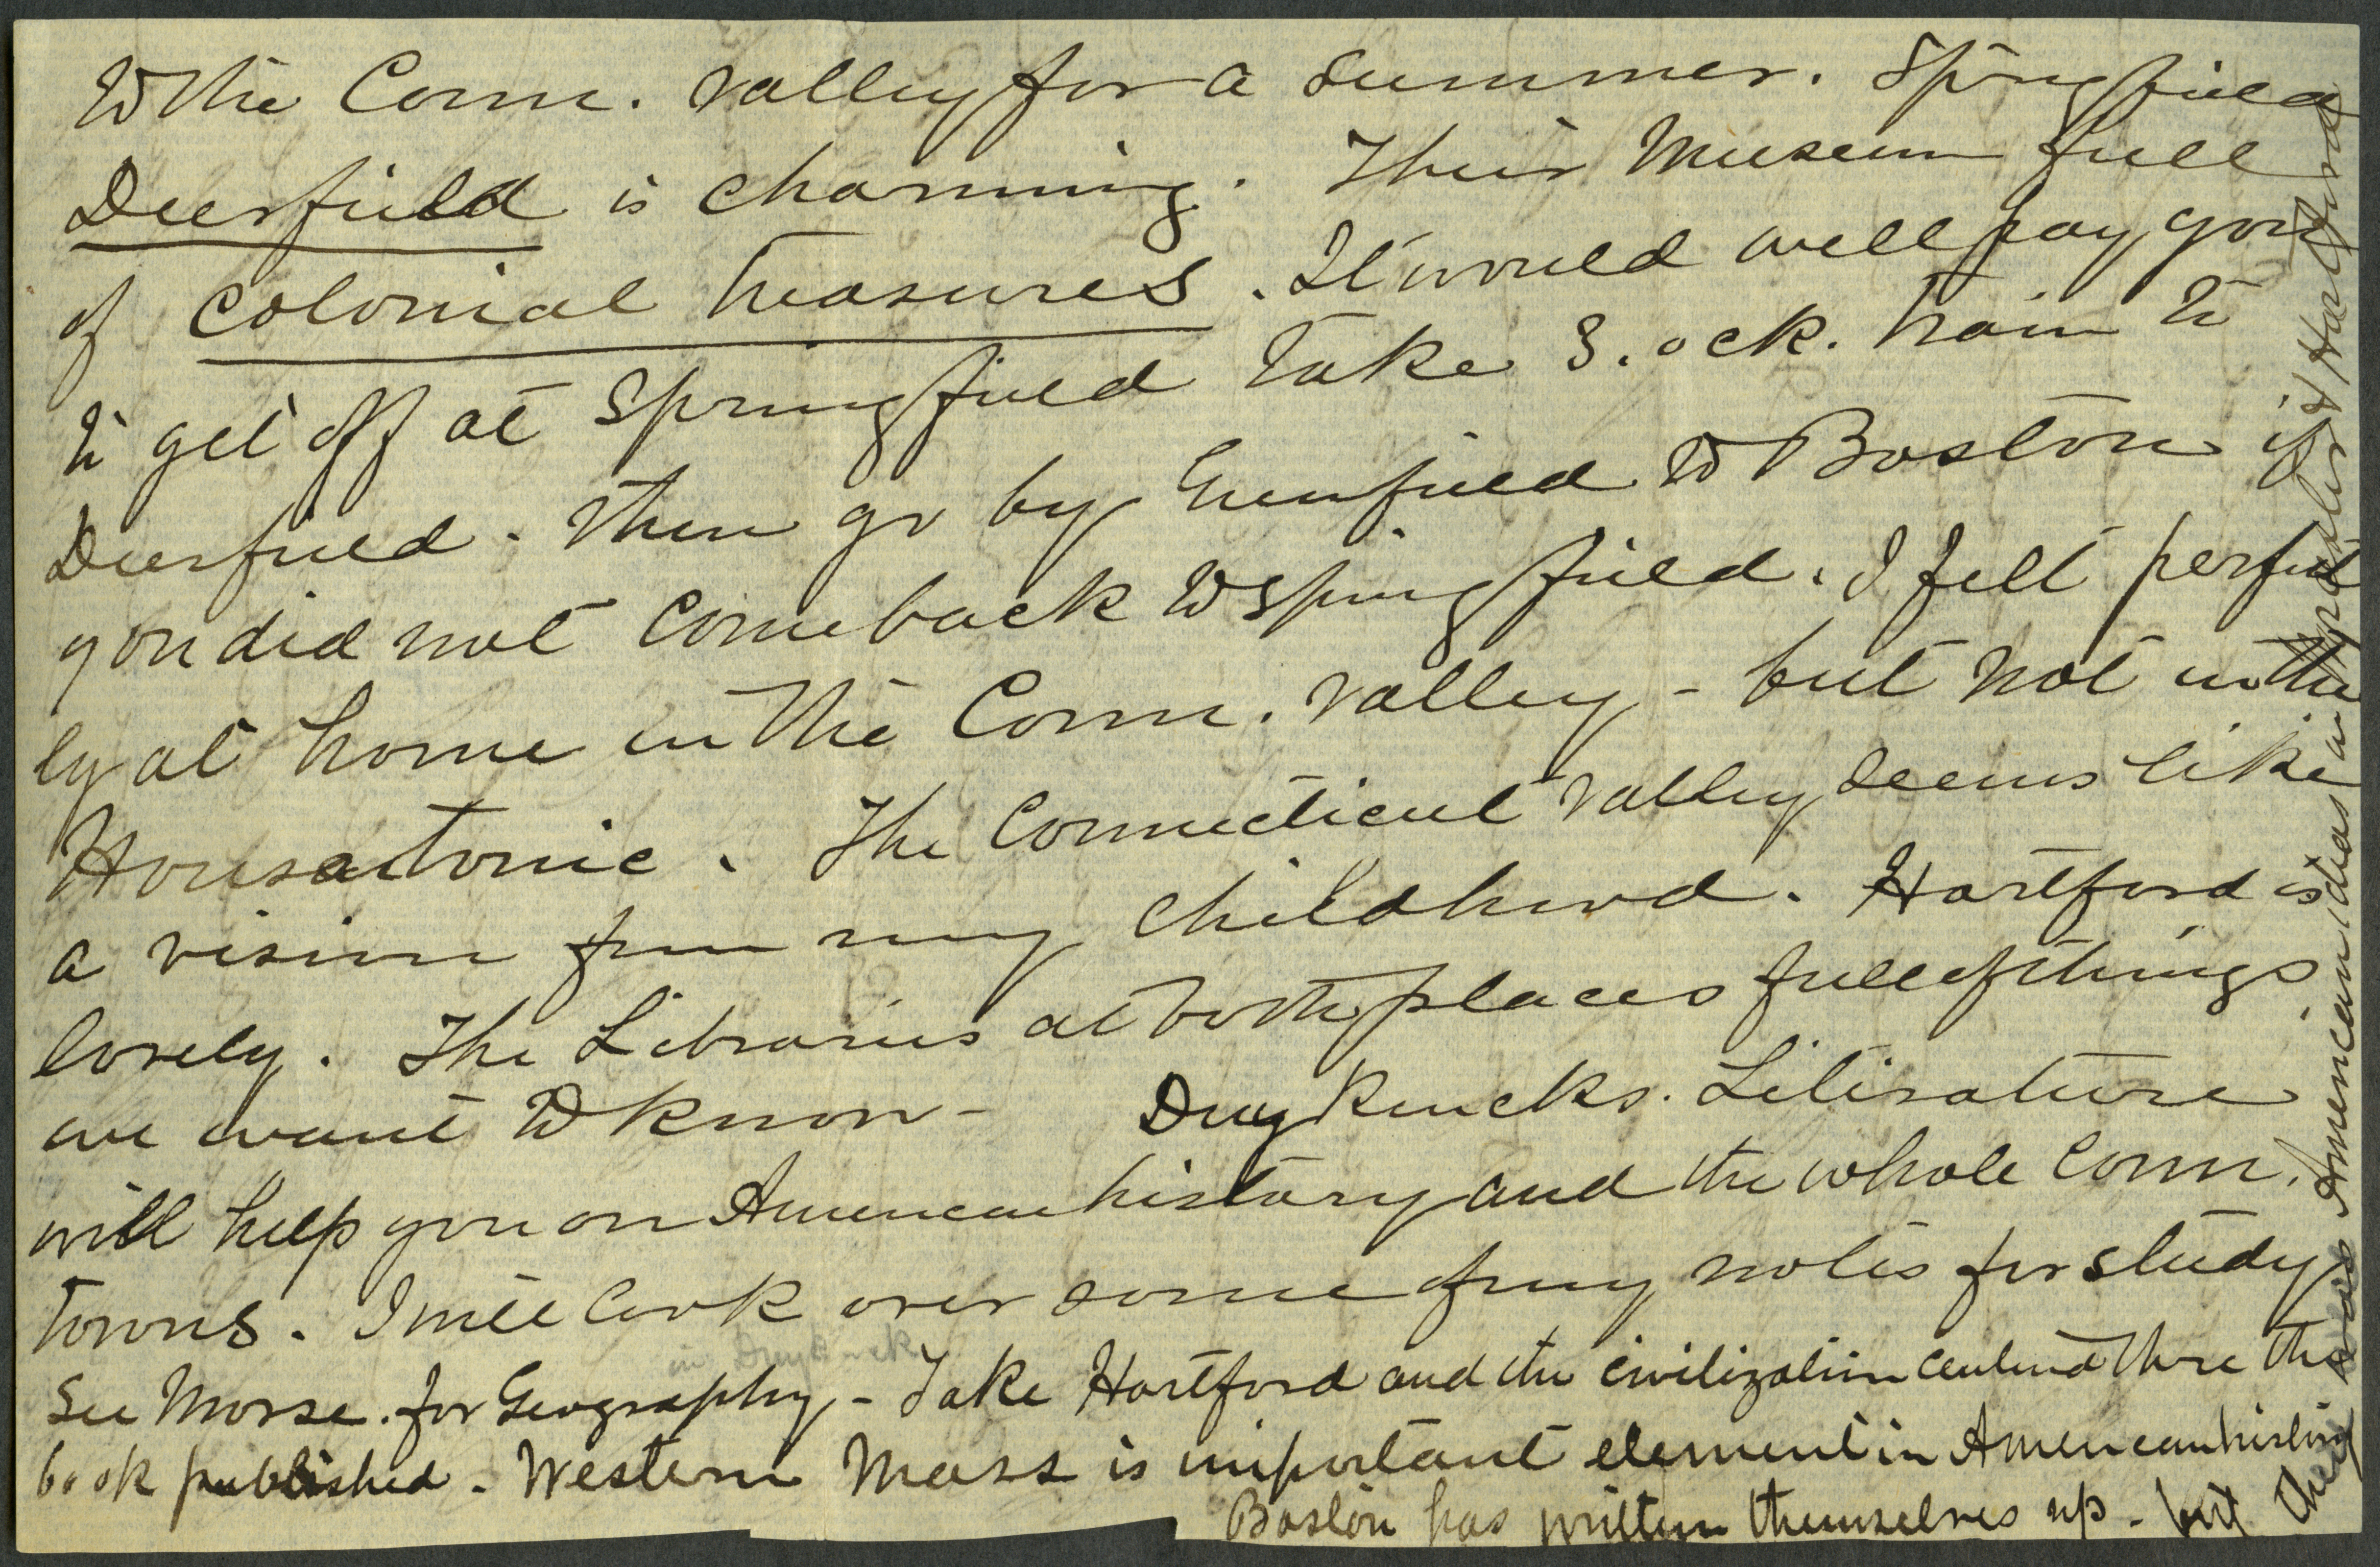 to the Conn. valley for a summer. Springfield
Deerfield is charming. Their Museum full
of colonial treasures. It would well pay you
to get off at Springfield take 3. ock. train to
Deerfield. Then go by Greenfield to Boston if
you did not come back to Springfield. I felt perfect
ly at home in the Conn. valley - but not in the
Housatonic. The Connecticut valley seems like
a vision from my childhood. Hartford is
lovely. The Libraries at both places full of things
we want to know - Duyckincks. Literature
will help you on American history and the whole Conn.
towns. I will look over some of my notes for study
in Duyckinck
See Morse. for Geography - Take Hartford and the civilization centered there the
book published. Western Mass is important element in American history
Boston has written themselves up - but
there was American ideas in & Hartford